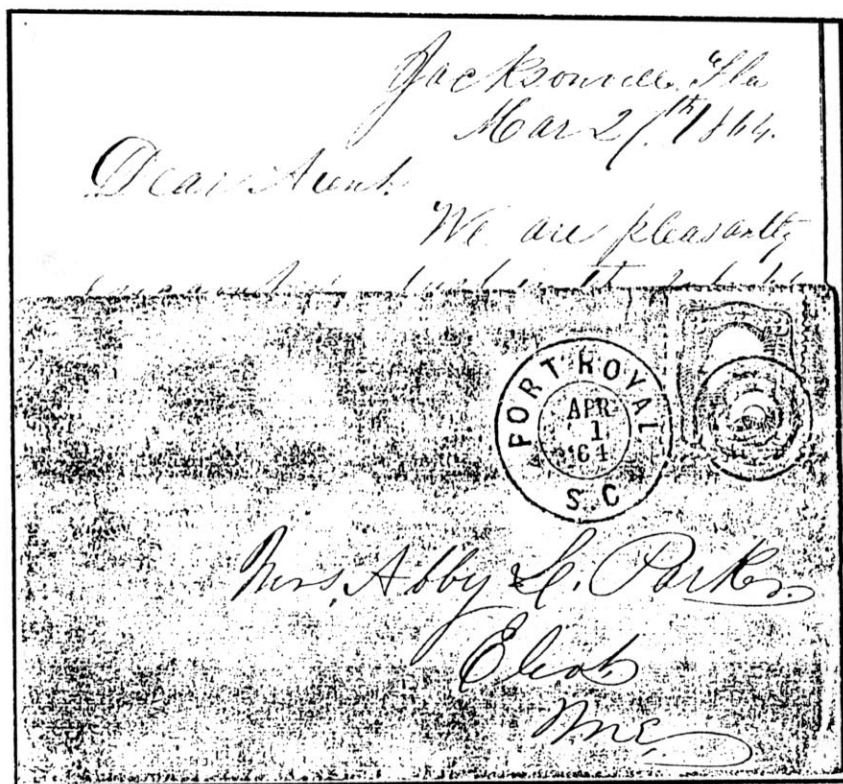 Jacksonville, Fla
Mar 27th 1864.
Dear Aunt.
We are pleasantly
3 3
PORT ROYAL
APR
1
'64
S.C
Mrs, Abby L. Parker
Eliot
Me,